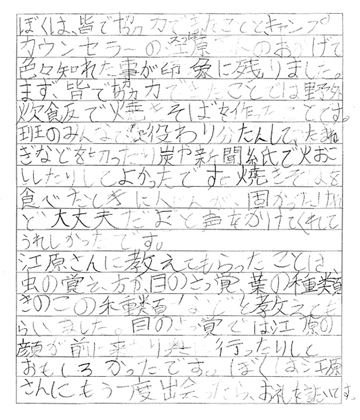 ぼくは、皆で協力できたことときキャンプ
カウンセラーの江原さんのおかげで
色々知れた事が印象に残りました。
まず、皆で協力できたことでは野外
炊飯で焼きそばを作ったことです。
班のみんなで役わり分たんして、たまね
ぎなどを切ったり炭や新聞紙で火おこ
ししたりしてよかったです。焼きそばを
食べたときに 固かったけれ
ど大丈夫だよと声をかけてくれて
うれしかったです。
江原さんに教えてもらったことは、
虫の覚え方が目のさっ覚、葉の種類
きのこの種類などと教えても
らいました。目のさっ覚では江原の
顔が前に来たり 行ったりして
おもしろかったです。ぼくは江原
さんにもう一度出会ったら、お礼を言いたいです。